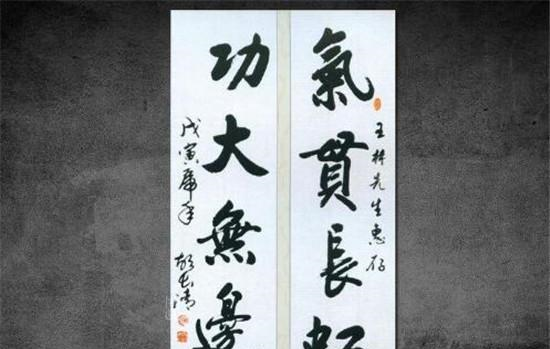 王林先生惠存
氣貫長虹
功大無邊
戊寅虎年 胡長清